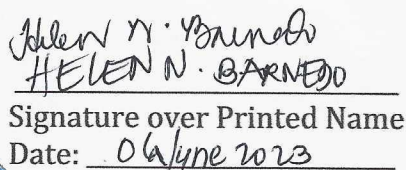 Helen N. Barnedo
HELEN N. BARNEDO
Signature over Printed Name
Date: 06 June 2023